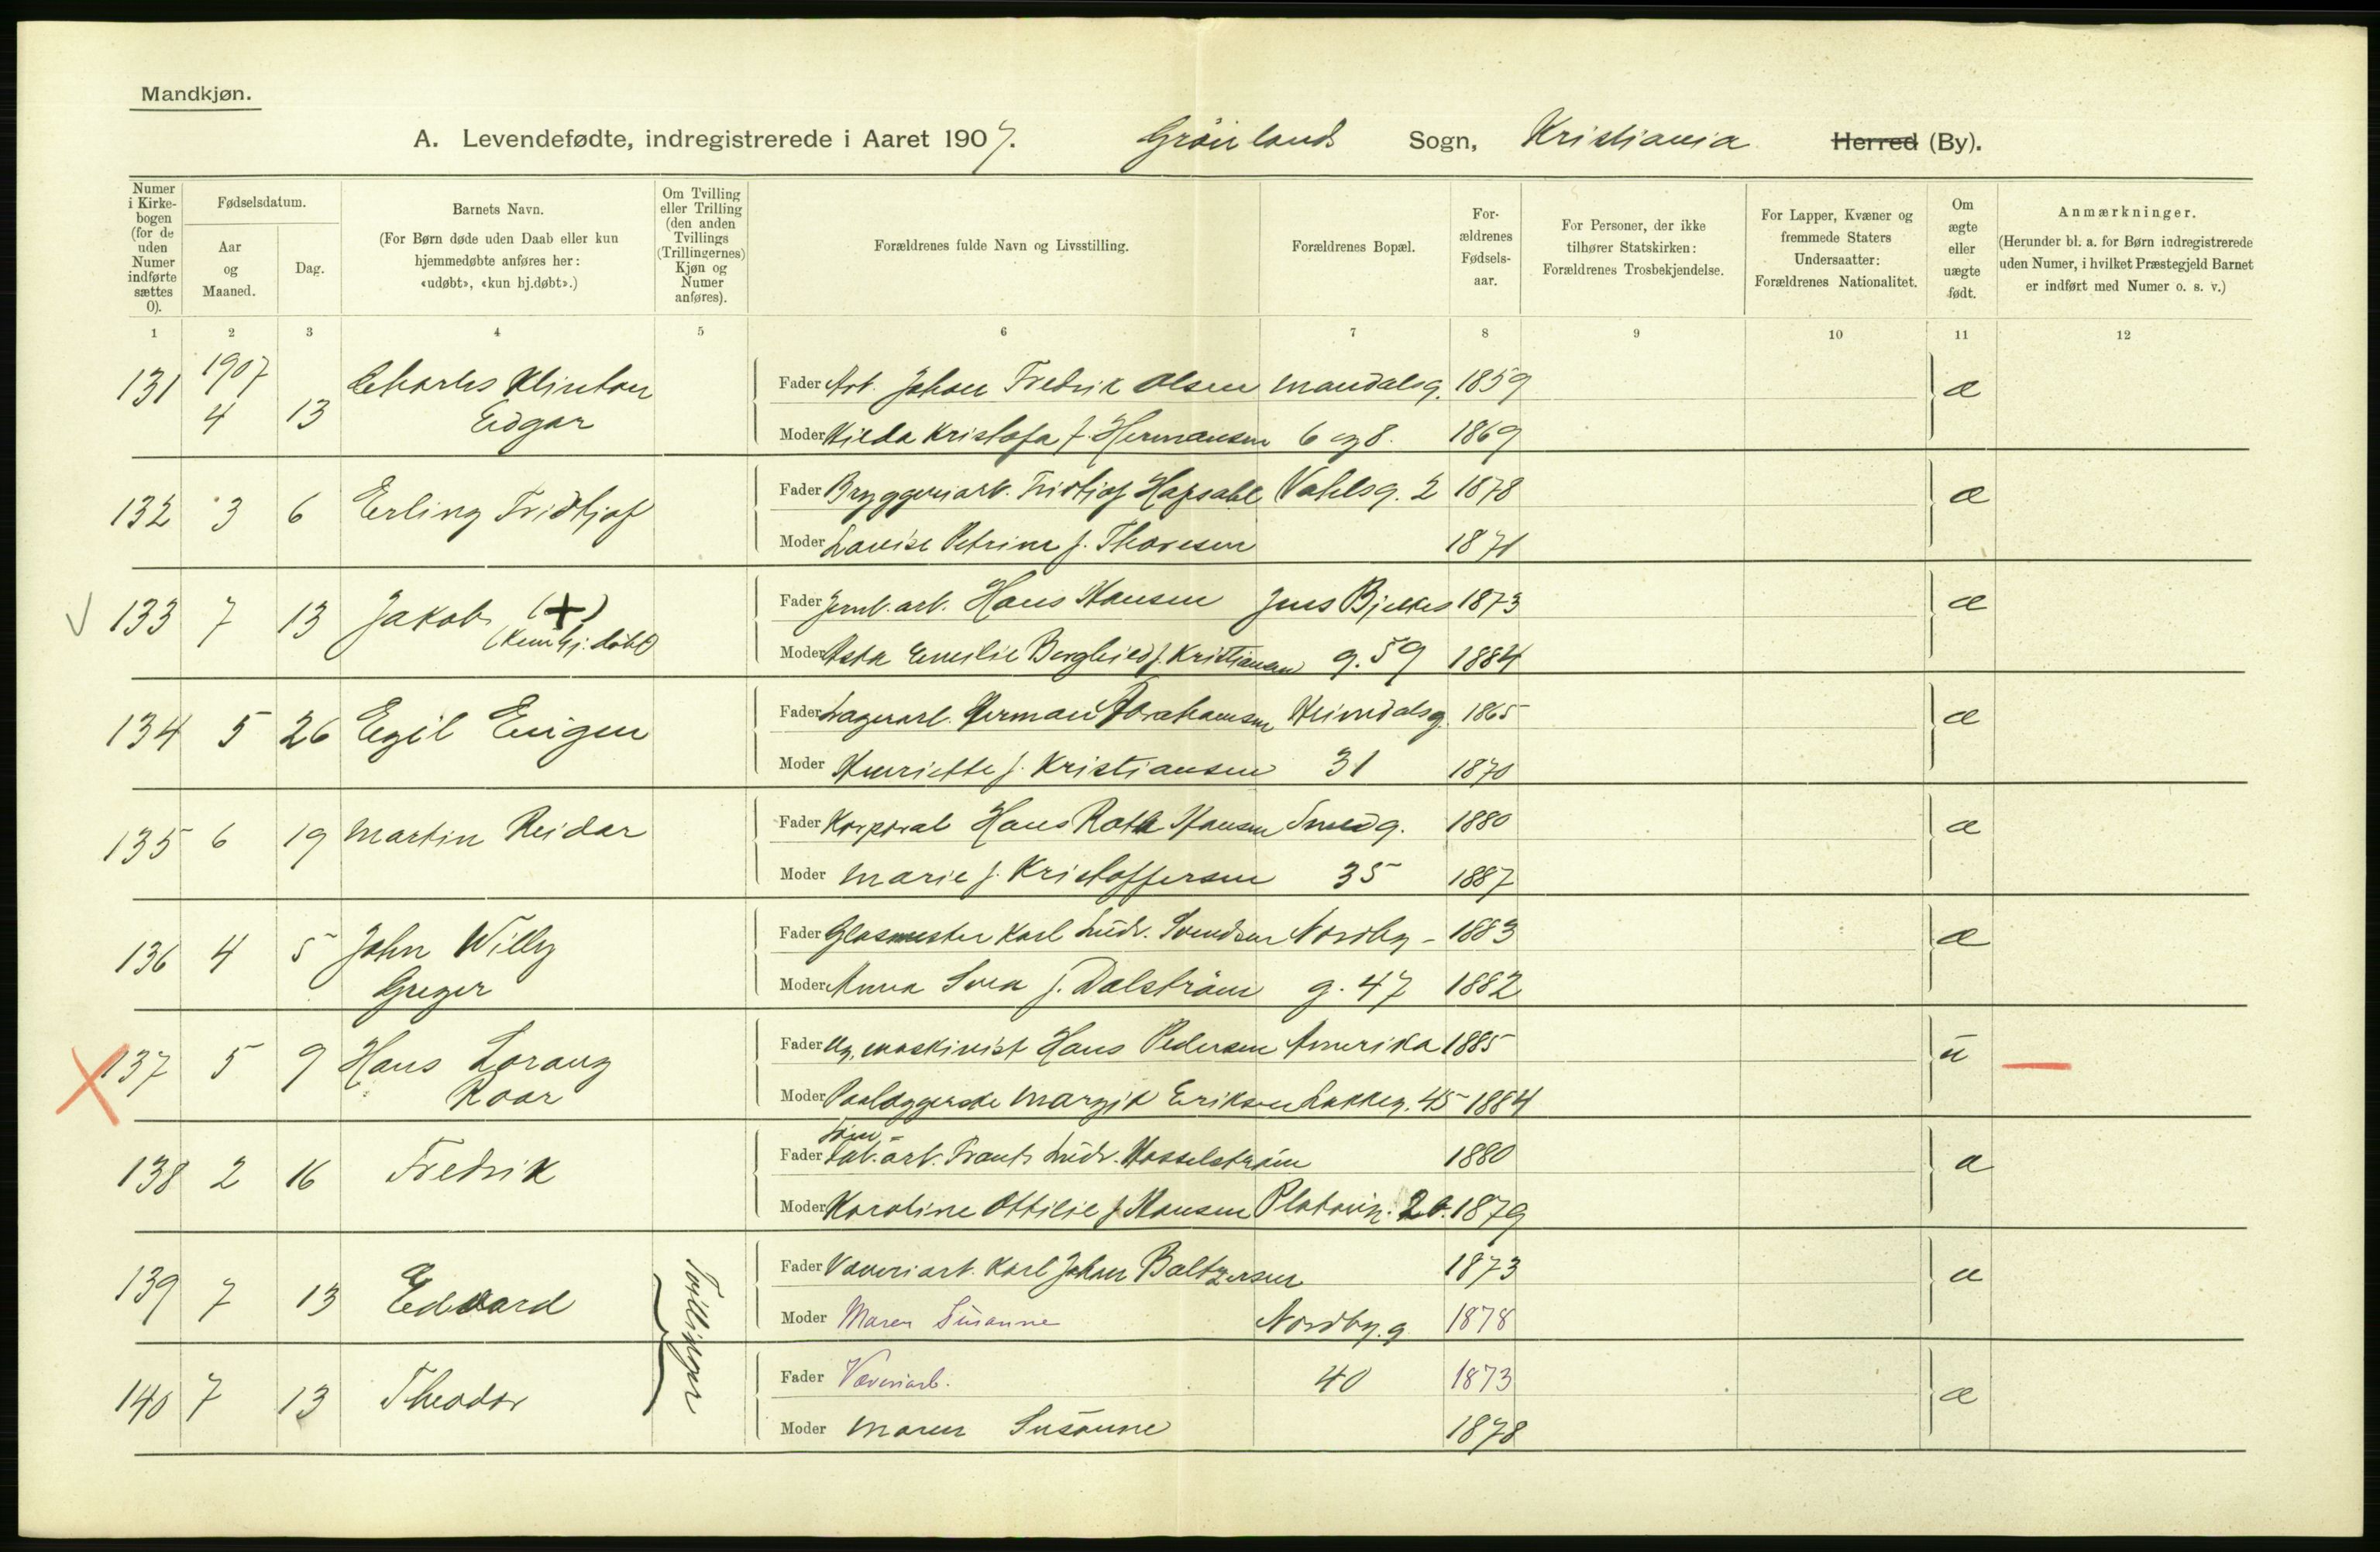 Mandkjøn.
A. Levendefødte, indregistrerede i Aaret 1907. Grönlands Sogn, Kristiania Herred (By).
Numer i Kirkebogen (for de uden Numer indførte sættes 0).
Fødselsdatum.
Aar og Maaned.
Dag.
Barnets Navn.
(For Børn døde uden Daab eller kun hjemmedøbte anføres her: «udøbt», «kun hj.døbt».)
Om Tvilling eller Trilling (den anden Tvillings (Trillingernes) Kjøn og Numer anføres).
Forældrenes fulde Navn og Livsstilling.
Forældrenes Bopæl.
Forældrenes Fødselsaar.
For Personer, der ikke tilhører Statskirken: Forældrenes Trosbekjendelse.
For Lapper, Kvæner og fremmede Staters Undersaatter: Forældrenes Nationalitet.
Om ægte eller uægte født.
Anmærkninger.
(Herunder bl. a. for Børn indregistrerede uden Numer, i hvilket Præstegjeld Barnet er indført med Numer o. s. v.)
1 2 3 4 5 6 7 8 9 10 11 12
131 1907 4 13 Charles Klinton Edgar Fader Arb. Johan Fredrik Olsen Mandalsg. 1859 æ
Moder Hilda Kristofa f. Hermansen 6 og 8. 1869
132 3 6 Erling Fridtjof Fader Bryggeriarb. Fridtjof Hapsahl Vahlsg. 2 1878 æ
Moder Lovise Petrine f. Thoresen 1871
133 7 13 Jakob (+) (Kun hj. döbt) Fader Jernb. arb. Hans Hansen Jens Bjelkes 1873 æ
Moder Asta Emilie Borghild f. Kristiansen g. 59 1884
134 5 26 Egil Eugen Fader Lagerarb. Herman Abrahamsen Heimdalsg. 1865 æ
Moder Henriette f. Kristiansen 31 1870
135 6 19 Martin Reidar Fader Korporal Hans Roth Hansen Smedg. 1880 æ
Moder Marie f. Kristoffersen 35 1887
136 4 5 John Willy Greger Fader Glasmester Karl Ludv. Svendsen Nordby- 1883 æ
Moder Anna Svea f. Dalström g. 47 1882
137 5 9 Hans Lorang Roar Fader Ug. maskinist Hans Pedersen Amerika 1885 u
Moder Paalæggerske Margit Eriksen Lakkeg. 45 1884
138 2 16 Fredrik Fader Fab. arb. Frants Ludv. Hasselström 1880 æ
Moder Karoline Ottilie f. Hansen Platoug. 2b. 1879
139 7 13 Edvard Tvillinger Fader Væveriarb. Karl Johan Baltzersen 1873 æ
Moder Maren Susanne Nordby.g 1878
140 7 13 Theodor Fader Væveriarb. 40 1873 æ
Moder Maren Susanne 1878